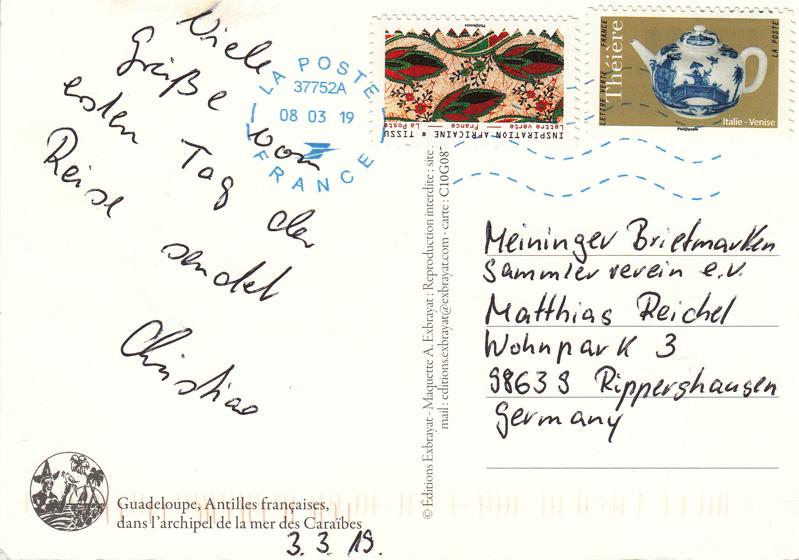 Viele
Grüße vom
ersten Tag der
Reise sendet
Christian
LA POSTE
37752A
08 03 19
FRANCE
INSPIRATION AFRICAINE * TISSU
Lettre verte — France — La Poste
Philaposte
LETTRE VERTE FRANCE
Théière
LA POSTE
Italie - Venise
Philaposte
© Editions Exbrayat - Maquette A. Exbrayat : Reproduction interdite ; site
mail : editions.exbrayat@exbrayat.com - carte : C10G08
Meininger Briefmarken
Sammlerverein e.V.
Matthias Reichel
Wohnpark 3
98639 Rippershausen
Germany
Guadeloupe, Antilles françaises,
dans l'archipel de la mer des Caraïbes
3.3.19.